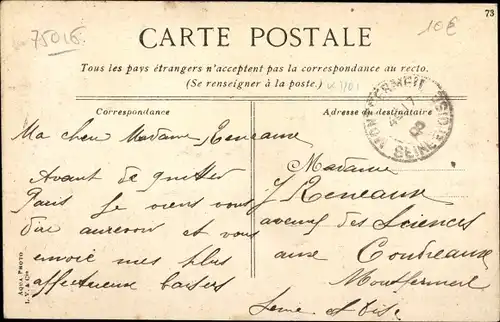 75016
10€
73
CARTE POSTALE
Tous les pays étrangers n'acceptent pas la correspondance au recto.
(Se renseigner à la poste.)
Correspondance
Adresse du destinataire
MONTFERMEIL
SEINE-ET-OISE
Ma chère Madame Reneaux
Avant de quitter
Paris je viens vous
dire aurevoir et vous
envoie mes plus
affectueux baisers
Madame
J Reneaux
avenue des Sciences
aux Coudreaux
Montfermeil
Seine et Oise
AQUA PHOTO
L. V. & Cie